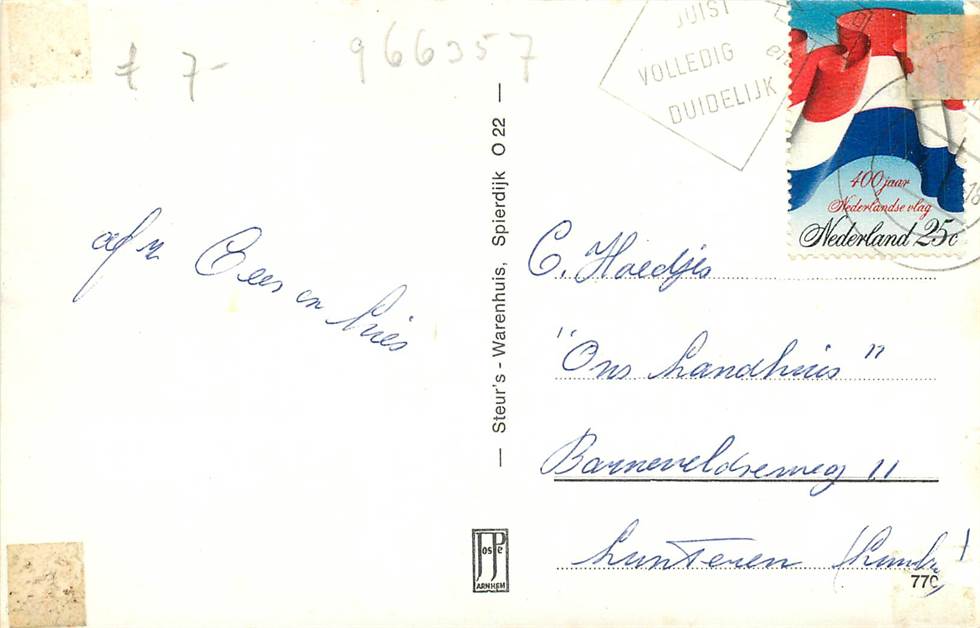 f 7-
966357
JUIST
VOLLEDIG
DUIDELIJK
400 jaar
Nederlandse vlag
Nederland 25c
Steur's - Warenhuis, Spierdijk O 22
afz Cees en Lies
C. Hoedjes
"Ons Landhuis"
Barneveldseweg 11
Lunteren
JosPé
ARNHEM
770